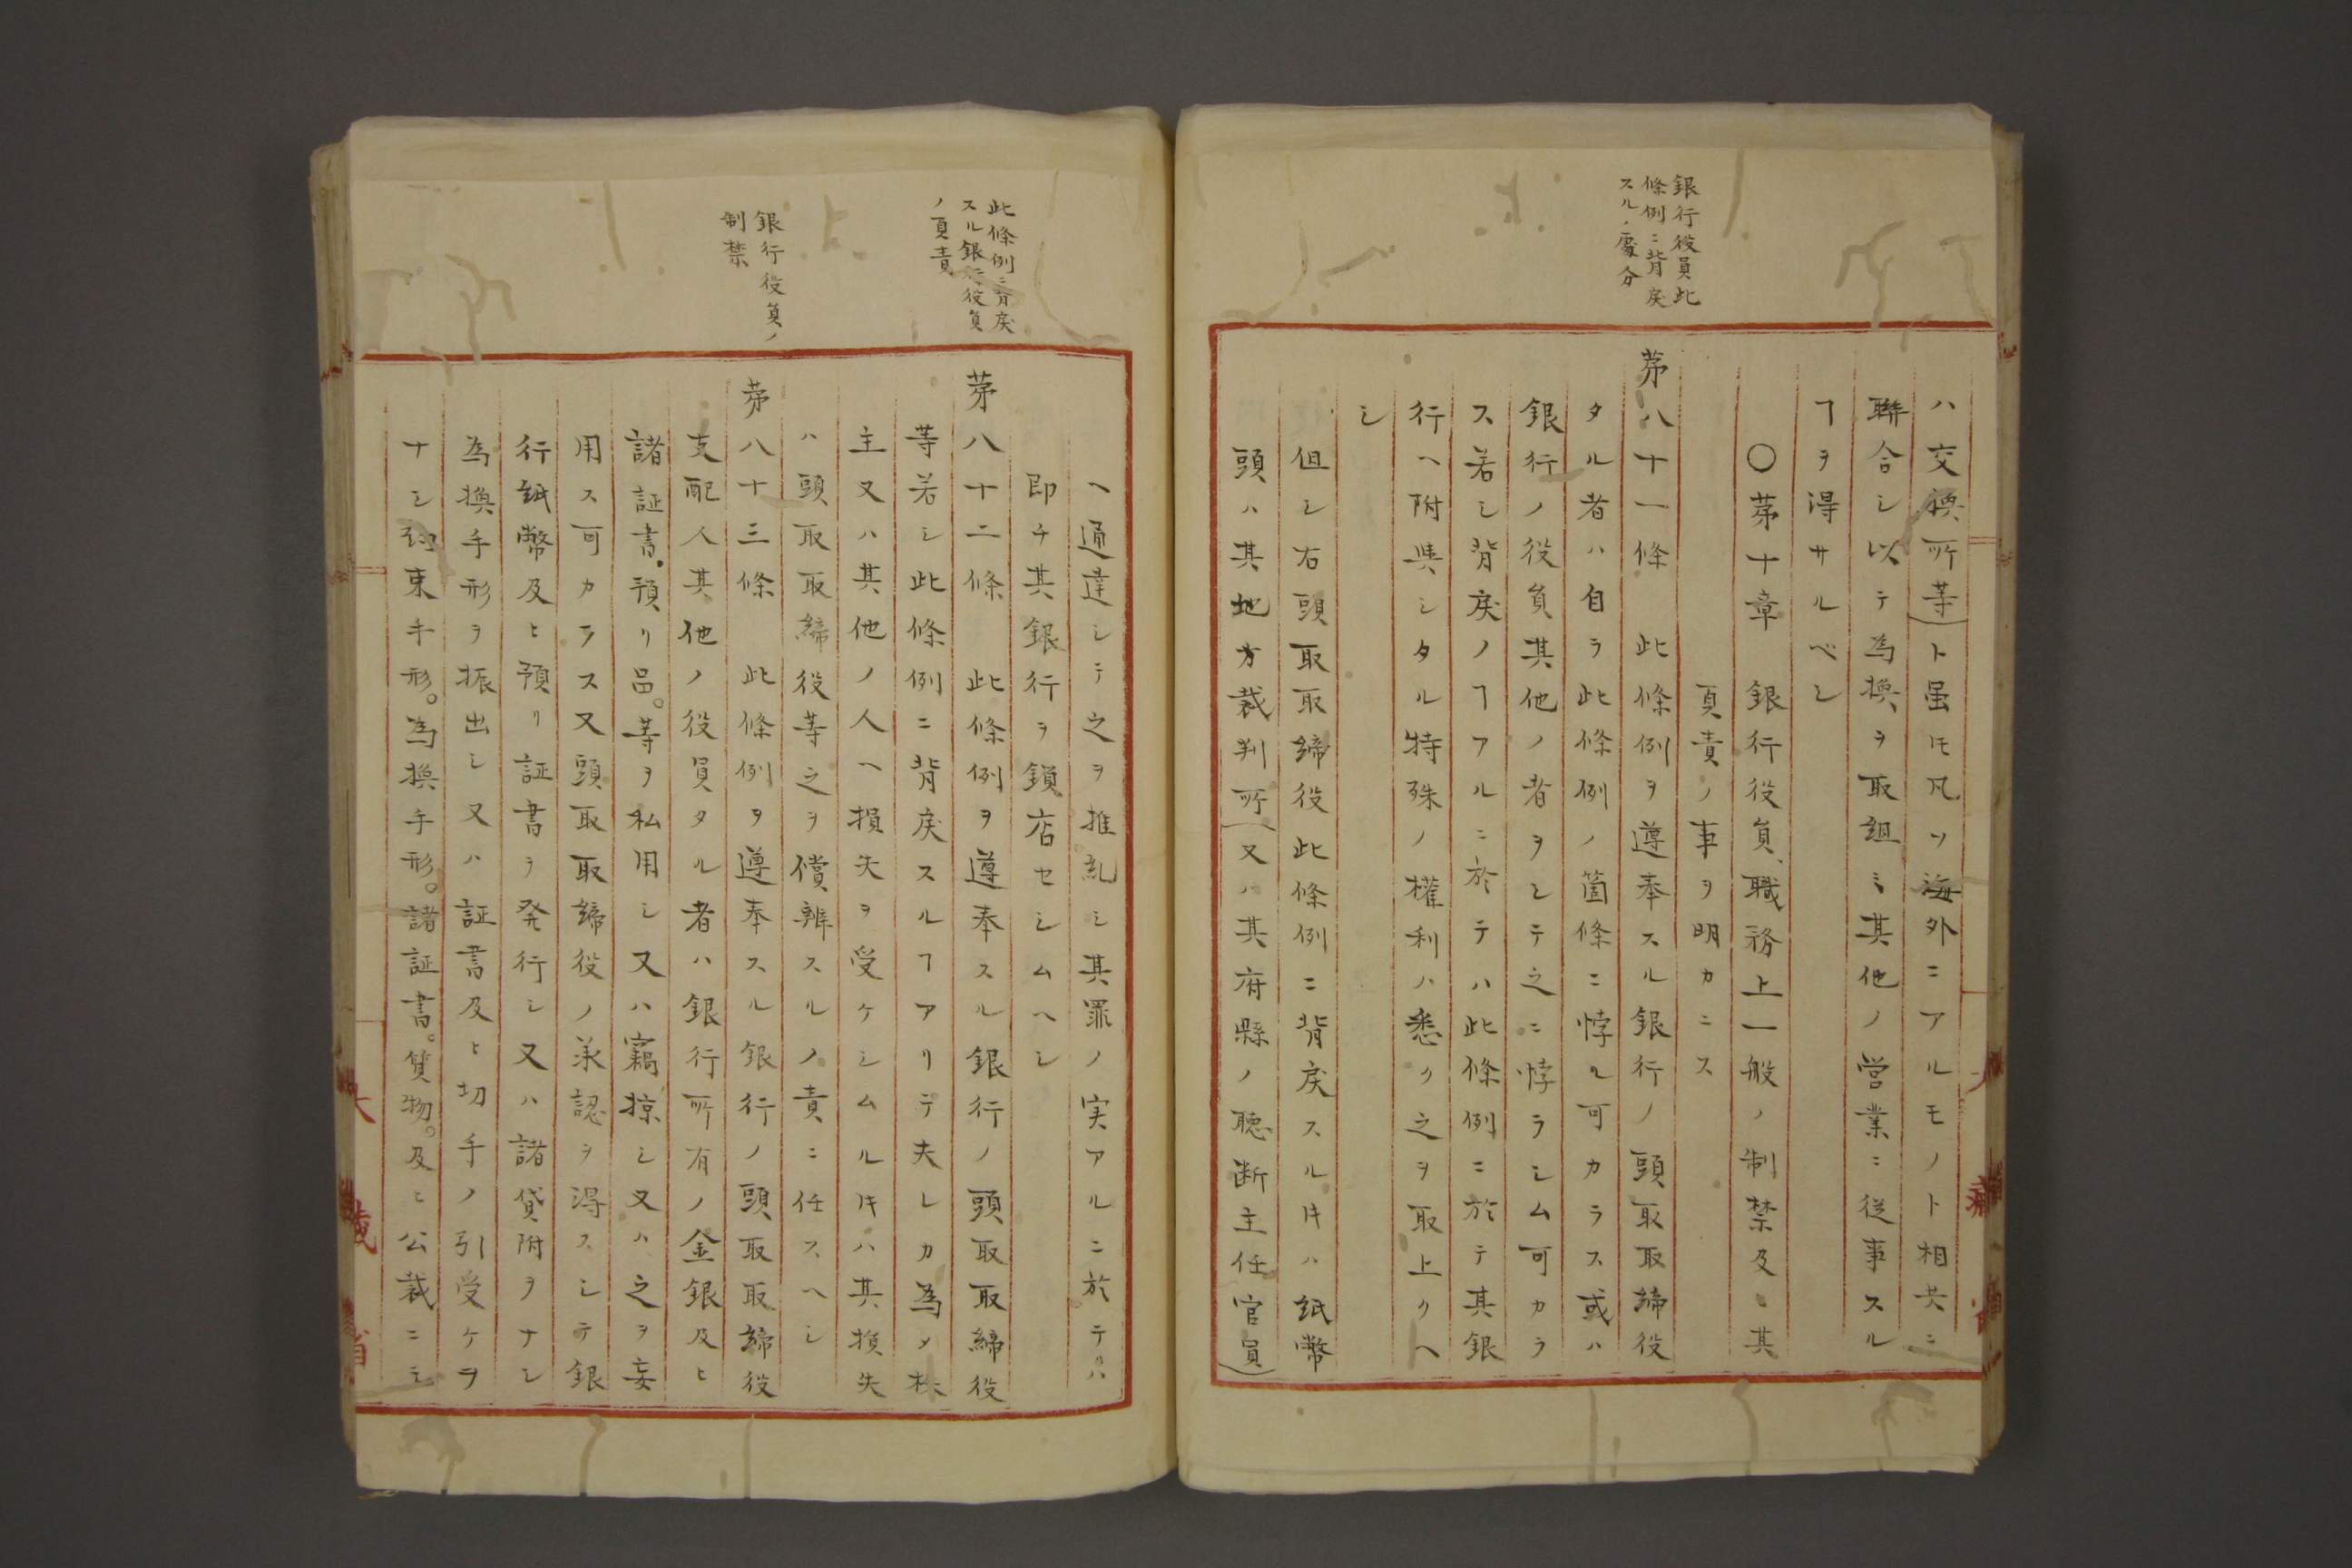 ハ交換所等)ト虽𪜈凡ソ海外ニアルモノト相共ニ
聯合シ以テ為換ヲ取組ミ其他ノ営業ニ従事スル
ヿヲ得サルベシ
〇第十章 銀行役員職務上一般ノ制禁及ヒ其
負責ノ事ヲ明カニス
銀行役員此
條例ニ背戻
スルノ處分
第八十一條 此條例ヲ遵奉スル銀行ノ頭取取締役
タル者ハ自ラ此條例ノ箇條ニ悖ル可カラス或ハ
銀行ノ役員其他ノ者ヲシテ之ニ悖ラシム可カラ
ス若シ背戻ノヿアルニ於テハ此條例ニ於テ其銀
行ヘ附與シタル特殊ノ權利ハ悉ク之ヲ取上クヘ
シ
但シ右頭取取締役此條例ニ背戻スル𪜈ハ紙幣
頭ハ其地方裁判所(又ハ其府縣ノ聴断主任官員)
ヘ通達シテ之ヲ推糺シ其罪ノ実アルニ於テハ
即チ其銀行ヲ鎖店セシムヘシ
此條例ニ背戻
スル銀行役員
ノ負責
第八十二條 此條例ヲ遵奉スル銀行ノ頭取取締役
等若シ此條例ニ背戻スルヿアリテ夫レカ為メ株
主又ハ其他ノ人ヘ損失ヲ受ケシムル𪜈ハ其損失
ハ頭取取締役等之ヲ償辨スルノ責ニ任スヘシ
銀行役員ノ
制禁
第八十三條 此條例ヲ遵奉スル銀行ノ頭取取締役
支配人其他ノ役員タル者ハ銀行所有ノ金銀及ヒ
諸証書。預リ品。等ヲ私用シ又ハ竊掠シ又ハ之ヲ妄
用ス可カラス又頭取取締役ノ承認ヲ得スシテ銀
行紙幣及ヒ預リ証書ヲ発行シ又ハ諸貸附ヲナシ
為換手形ヲ振出シ又ハ証書及ヒ切手ノ引受ケヲ
ナシ約束手形。為換手形。諸証書。質物。及ヒ公裁ニシ